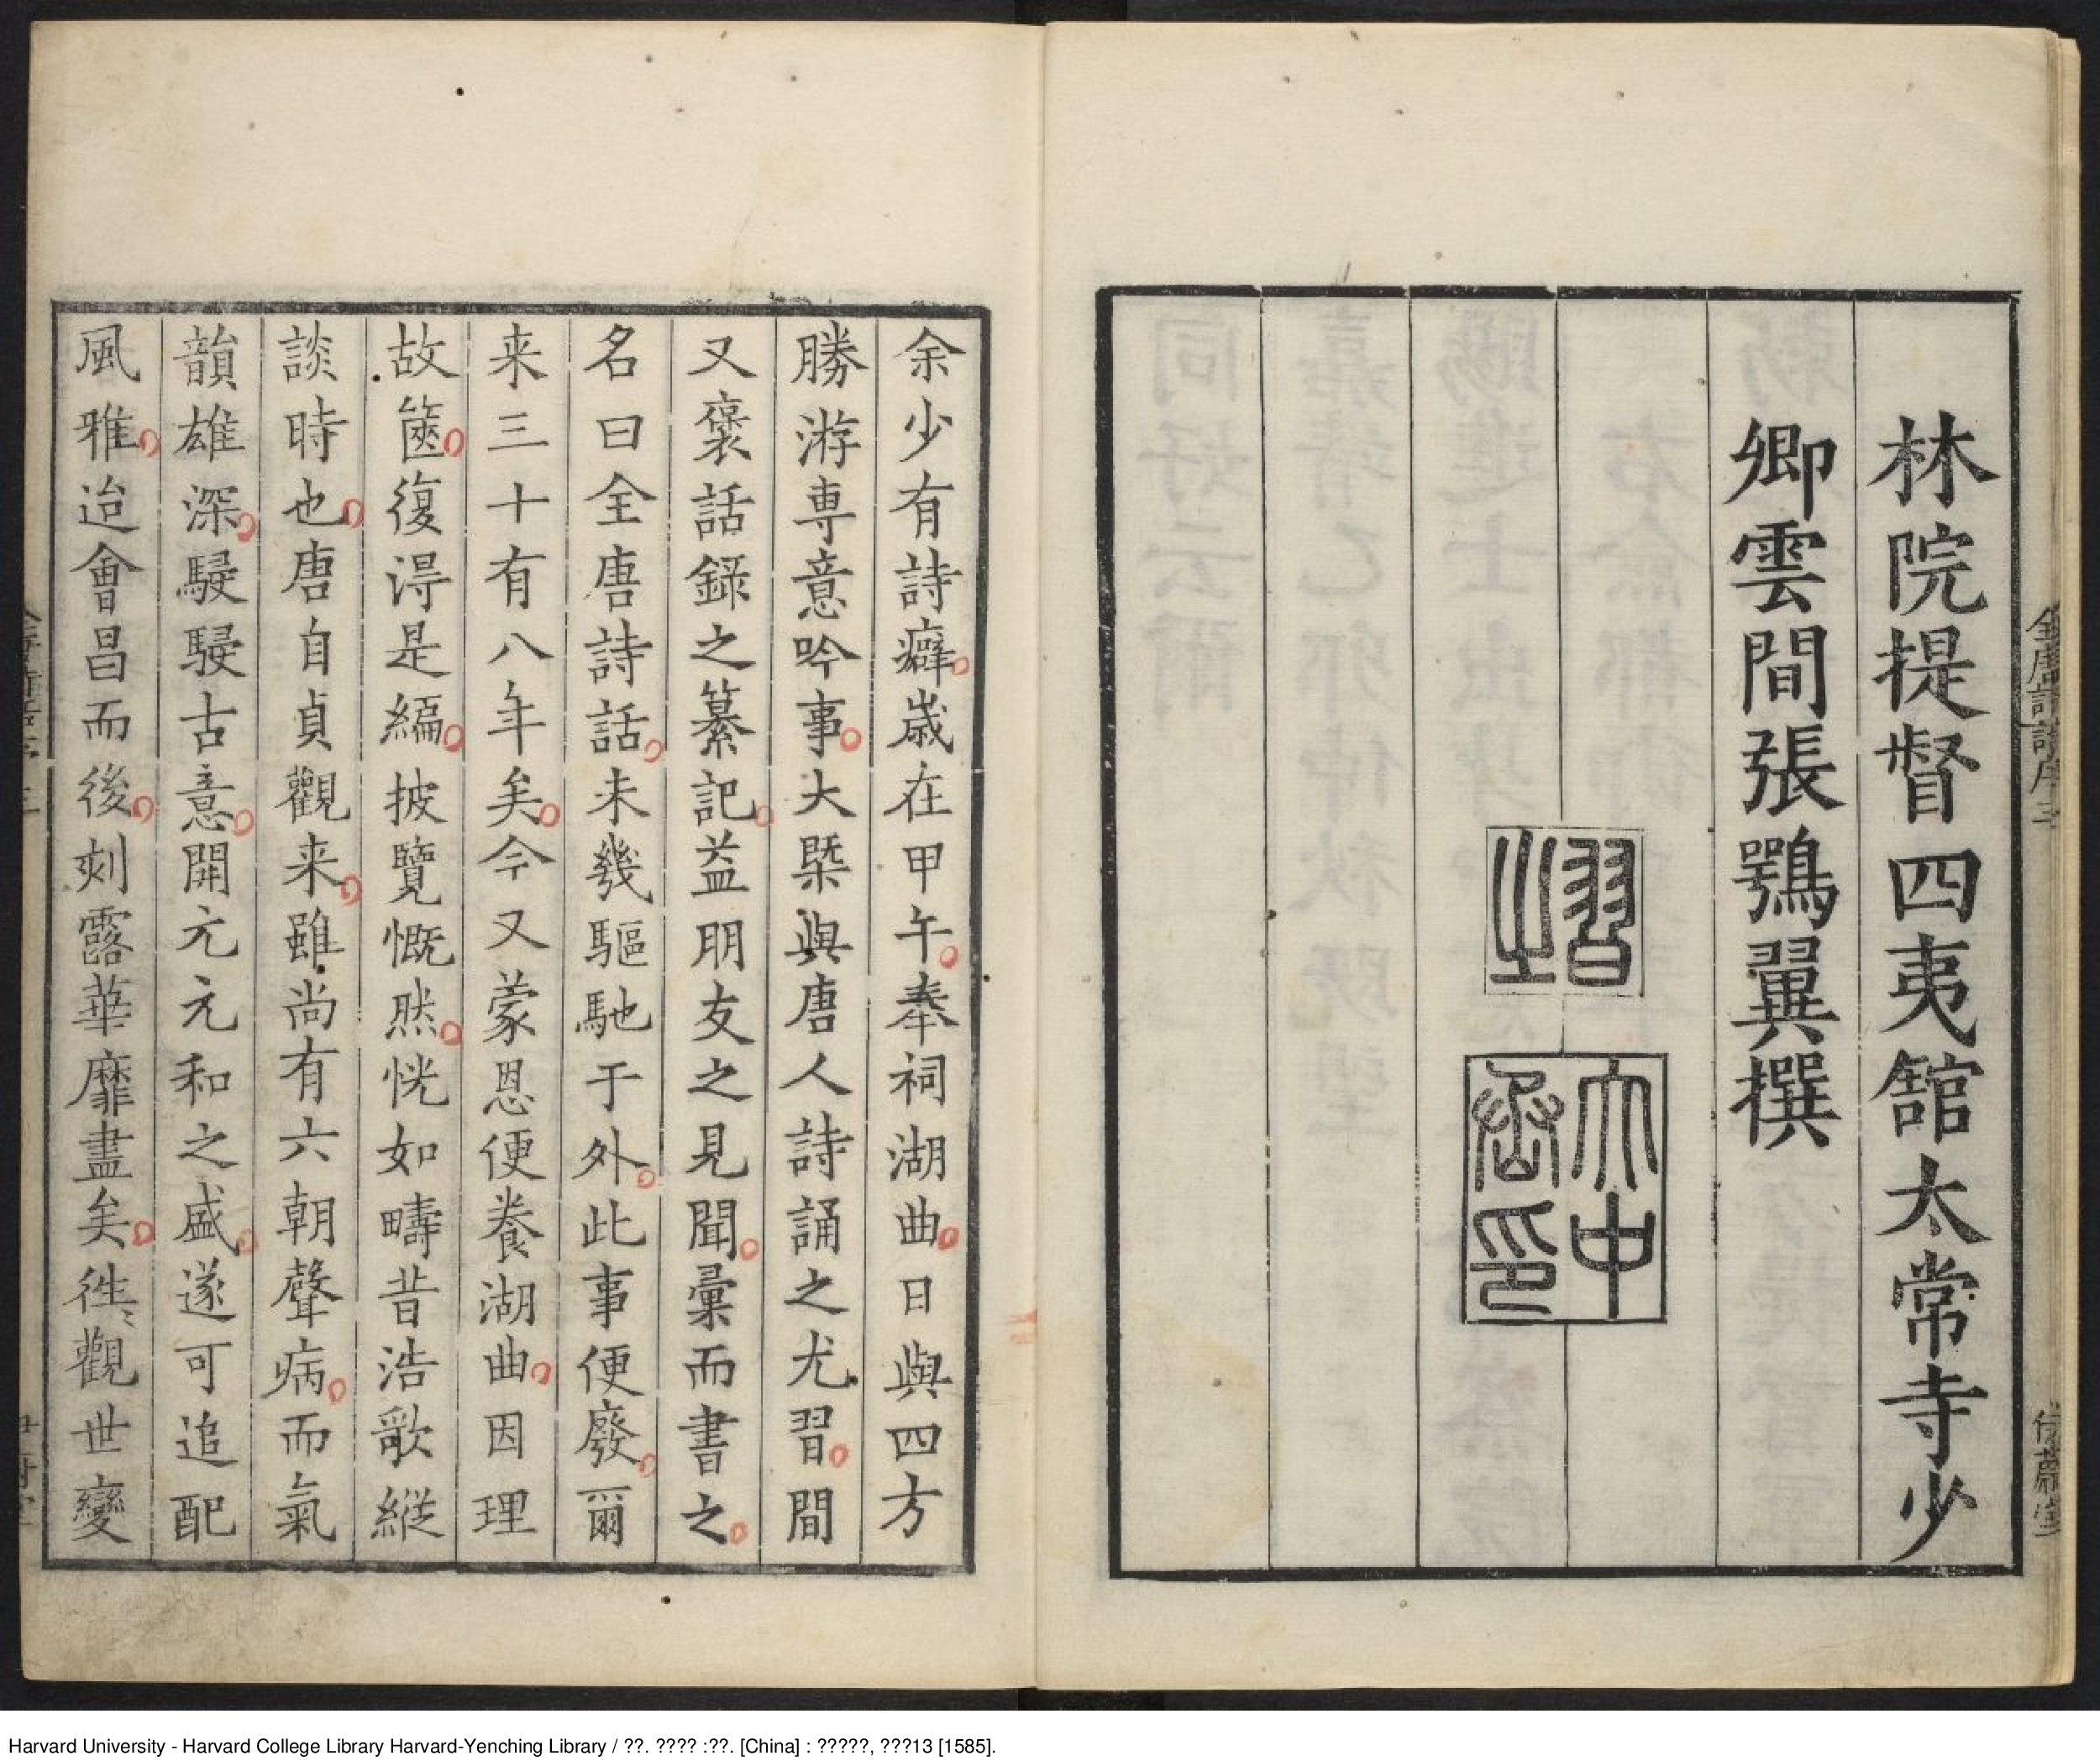 林院提督四夷舘太常寺少
卿雲間張鶚翼撰
余少有詩癖歲在甲午奉祠湖曲日與四方
勝游專意吟事大槩與唐人詩誦之尤習間
又褒話錄之纂記益朋友之見聞彙而書之
名曰全唐詩話未幾驅馳于外此事便廢爾
来三十有八年矣今又蒙恩便養湖曲因理
故篋復淂是編披覽慨然恍如疇昔浩歌縱
談時也唐自貞觀来雖尚有六朝聲病而氣
韻雄深駸駸古意開元元和之盛遂可追配
風雅迨會昌而後刻露華靡盡矣徃〻觀世變
Harvard University - Harvard College Library Harvard-Yenching Library / ??. ???? :??. [China] : ?????, ???13 [1585].